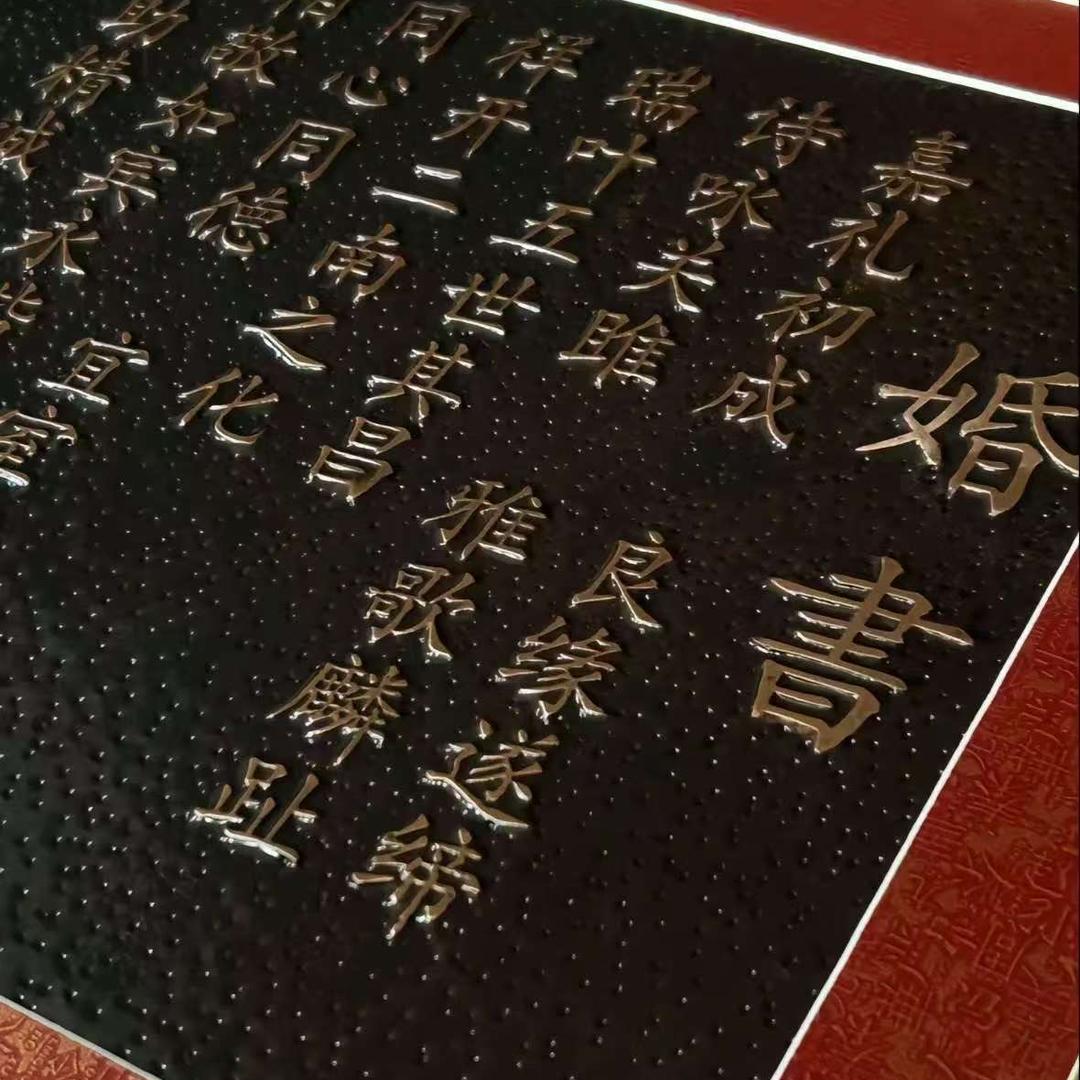 婚書
嘉礼初成 良缘遂缔
诗咏关雎 雅歌麟趾
瑞叶五世其昌
祥开二南之化
同心同德 宜室
敬如宾永
助精诚